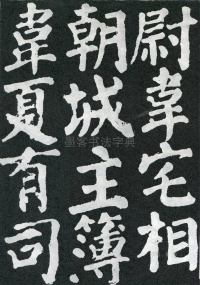 尉韋宅相
朝城主簿
韋夏有司
墨客书法字典